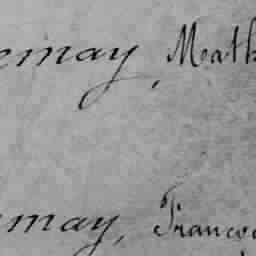 emay, Math
may, Franco